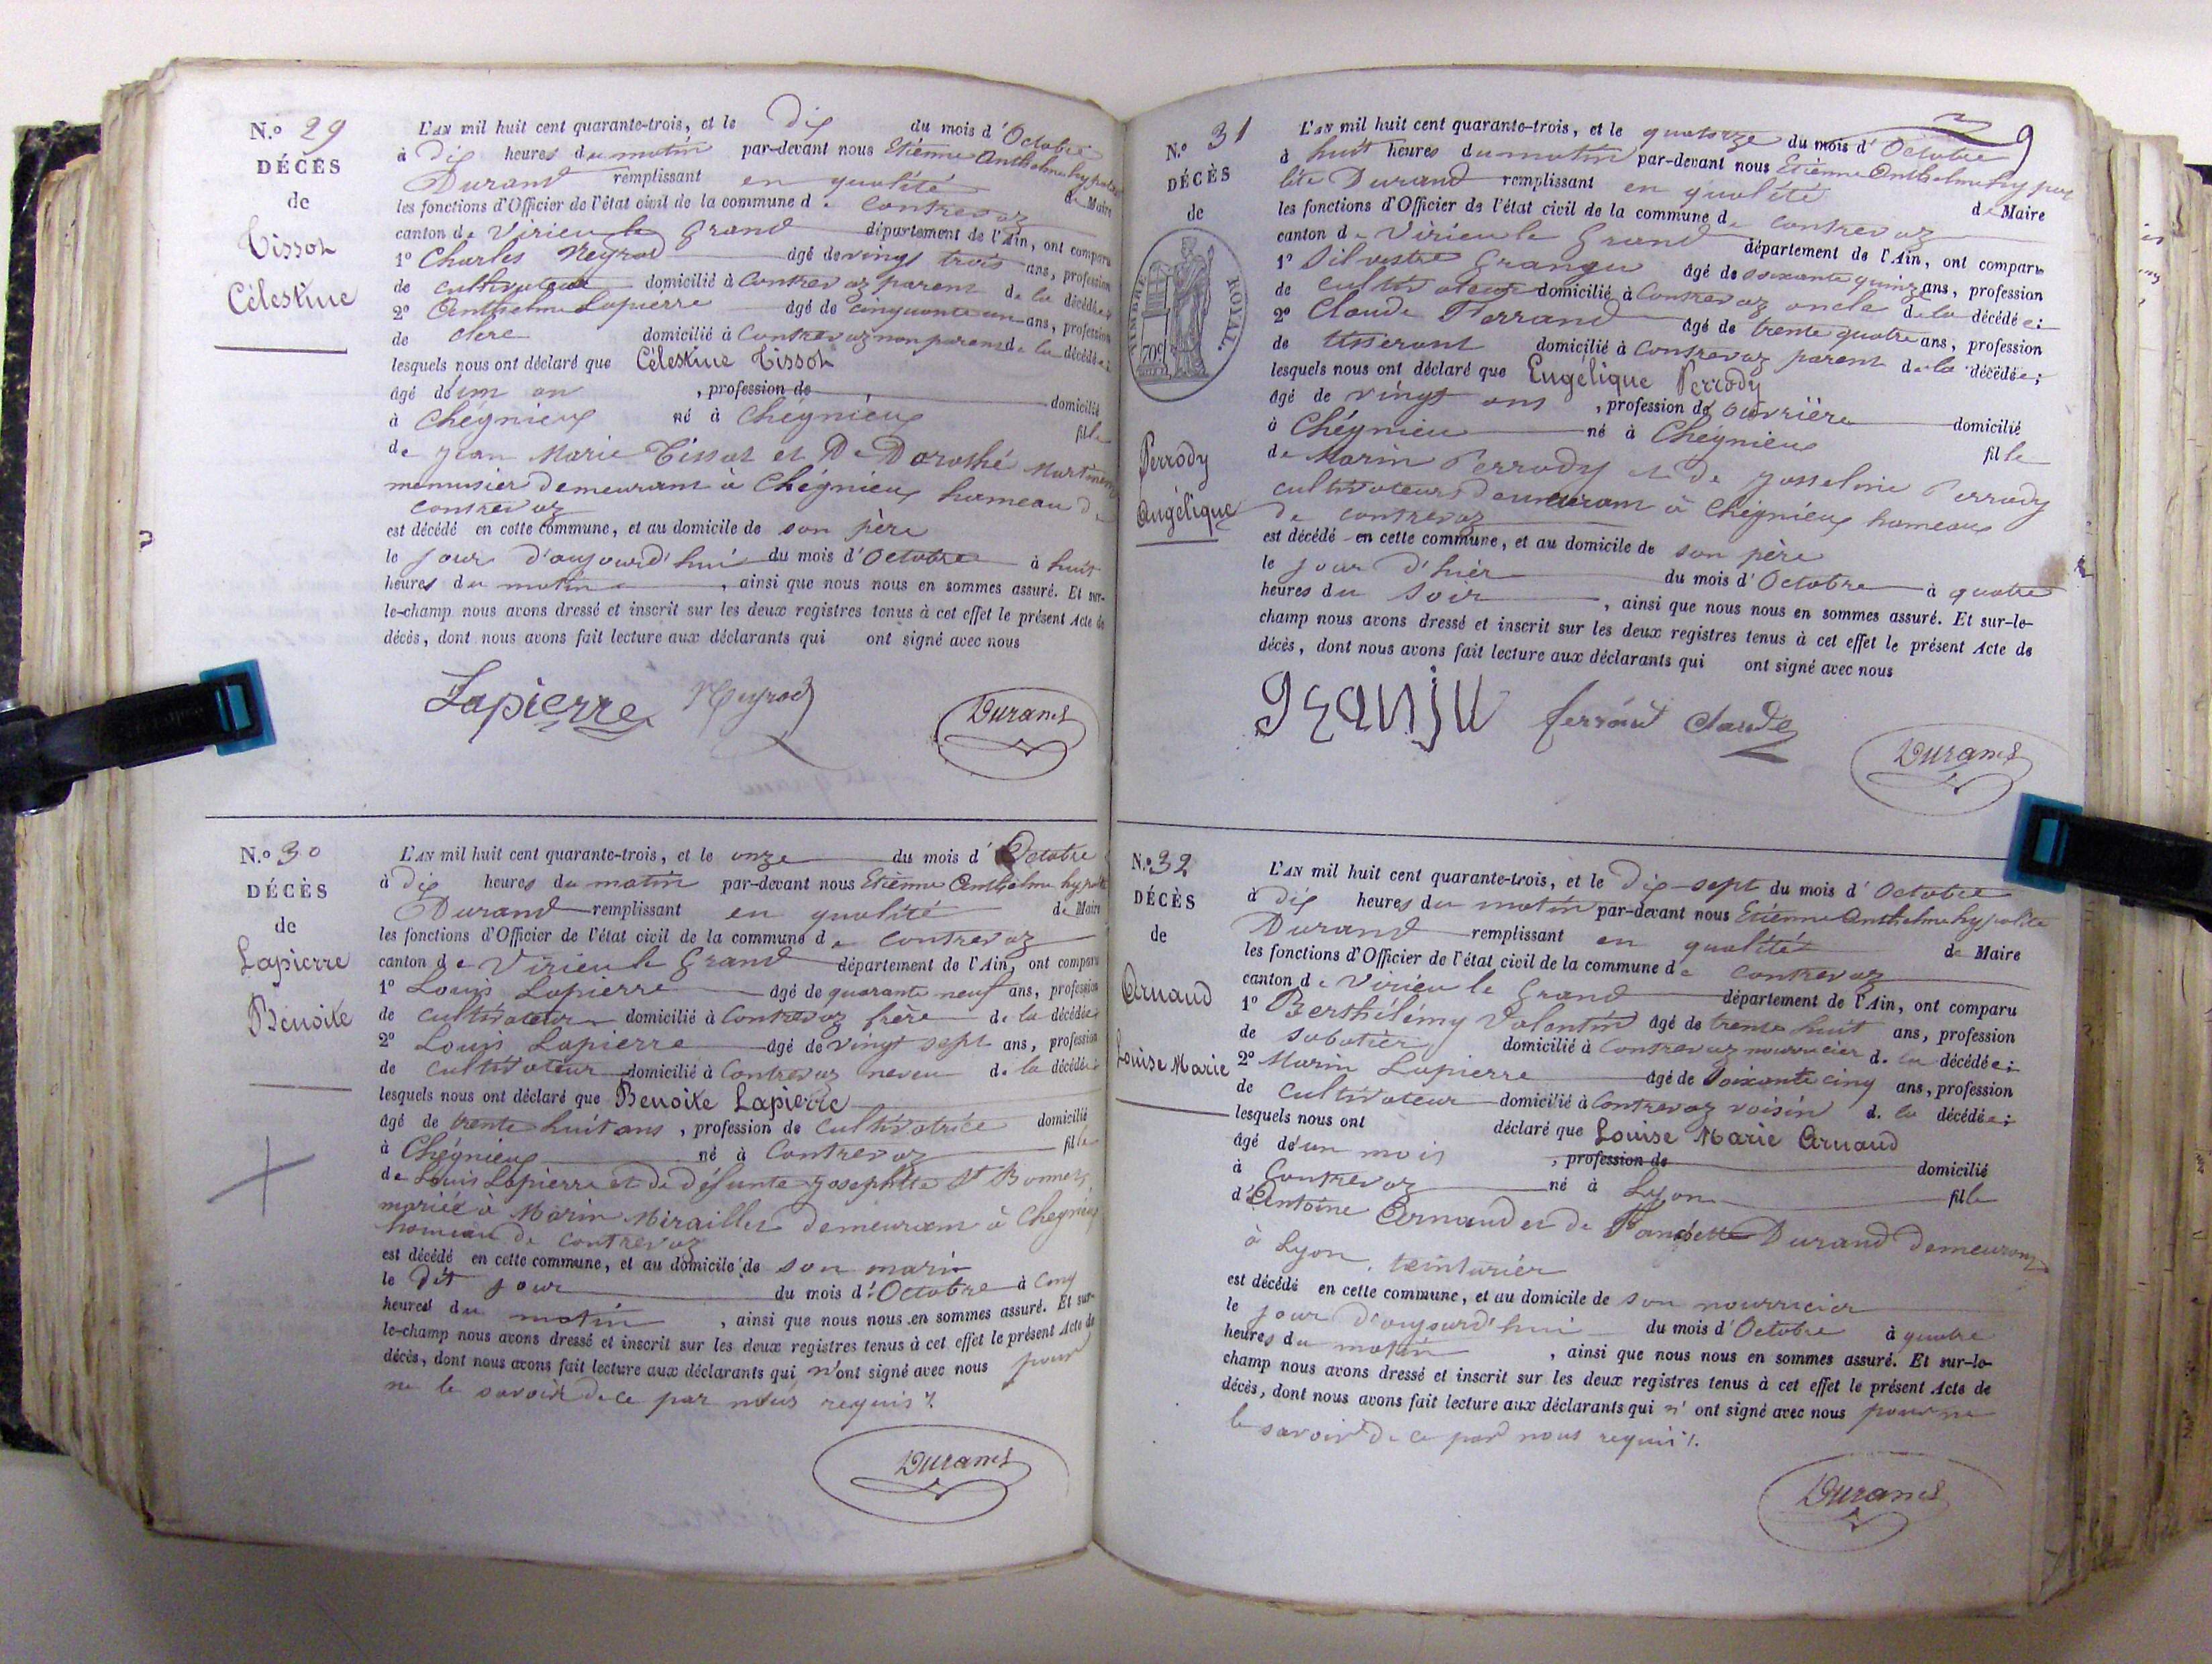 N.º 29
DÉCÈS
de
Tissot
Célestine
L'AN mil huit cent quarante-trois, et le Dix du mois d'Octobre
à Dix heures du matin par-devant nous Etienne Anthelme hypolite
Durand remplissant en qualité de Maire
les fonctions d'Officier de l'état civil de la commune de Contrevoz
canton de Virieu le Grand département de l'Ain, ont comparu
1º Charles Neyrod âgé de vingt trois ans, profession
de cultivateur domicilié à Contrevoz parent de la décédée;
2º Anthelme Lapierre âgé de cinquante un ans, profession
de clerc domicilié à Contrevoz non parent de la décédée;
lesquels nous ont déclaré que Célestine Tissot
âgé d'un an , profession de domicilié
à Chégnieux né à Chégnieux fille
de jean Marie Tissot et De Dorothé
menuisier demeurant à Chégnieux hameau de
contrevoz
est décédé en cette commune, et au domicile de son père
le jour d'aujourd'hui du mois d'Octobre à huit
heures du matin , ainsi que nous nous en sommes assuré. Et sur-
le-champ nous avons dressé et inscrit sur les deux registres tenus à cet effet le présent Acte de
décès, dont nous avons fait lecture aux déclarants qui ont signé avec nous
Lapierre Neyrod Durand
N.º 30
DÉCÈS
de
Lapierre
Benoite
L'AN mil huit cent quarante-trois, et le onze du mois d'Octobre
à dix heures du matin par-devant nous Etienne Anthelme hypolite
Durand remplissant en qualité de Maire
les fonctions d'Officier de l'état civil de la commune de contrevoz
canton de Virieu le Grand département de l'Ain, ont comparu
1º Louis Lapierre âgé de quarante neuf ans, profession
de cultivateur domicilié à Contrevoz frère de la décédée;
2º Louis Lapierre âgé de vingt sept ans, profession
de cultivateur domicilié à Contrevoz neveu de la décédée;
lesquels nous ont déclaré que Benoite Lapierre
âgé de trente huit ans , profession de Cultivatrice domicilié
à Chégnieux né à Contrevoz fille
de Louis Lapierre et de défunte Josephtte St Bonnet,
mariée à Marin Miraillet demeurant à Chegnieux
hameau de contrevoz
est décédé en cette commune, et au domicile de son marin
le dit jour du mois d'Octobre à cinq
heures du matin , ainsi que nous nous en sommes assuré. Et sur-
le-champ nous avons dressé et inscrit sur les deux registres tenus à cet effet le présent Acte de
décès, dont nous avons fait lecture aux déclarants qui n'ont signé avec nous pour
ne le savoir de ce par nous requis
Durand
9
N.º 31
DÉCÈS
de
TIMBRE ROYAL.
70c
Perrody
Angélique
L'AN mil huit cent quarante-trois, et le quatorze du mois d'Octobre
à huit heures du matin par-devant nous Etienne Anthelme hypo
lite Durand remplissant en qualité de Maire
les fonctions d'Officier de l'état civil de la commune de contrevoz
canton de Virieu le Grand département de l'Ain, ont comparu
1º Silvestre Granju âgé de soixante quinze ans, profession
de cultivateur domicilié à Contrevoz oncle de la décédée;
2º Claude Ferrand âgé de trente quatre ans, profession
de tisserant domicilié à Contrevoz parent de la décédée;
lesquels nous ont déclaré que Engélique Perrody
âgé de vingt ans , profession de ouvrière domicilié
à Chégnieu né à Chégnieux fille
de Marin Perrody et de Josseline Perrody
cultivateurs demeurant à Chégnieux hameau
de contrevoz
est décédé en cette commune, et au domicile de son père
le jour d'hier du mois d'Octobre à quatre
heures du soir , ainsi que nous nous en sommes assuré. Et sur-le-
champ nous avons dressé et inscrit sur les deux registres tenus à cet effet le présent Acte de
décès, dont nous avons fait lecture aux déclarants qui ont signé avec nous
granju ferrand claude Durand
N.º 32
DÉCÈS
de
Arnaud
Louise Marie
L'AN mil huit cent quarante-trois, et le dix-sept du mois d'Octobre
à dix heures du matin par-devant nous Etienne Anthelme hypolite
Durand remplissant en qualité de Maire
les fonctions d'Officier de l'état civil de la commune de contrevoz
canton de Virieu le Grand département de l'Ain, ont comparu
1º Berthélémy Valentin âgé de trente huit ans, profession
de sabotier domicilié à Contrevoz nourricier de la décédée;
2º Marin Lapierre âgé de soixante cinq ans, profession
de cultivateur domicilié à Contrevoz voisin de la décédée;
lesquels nous ont déclaré que Louise Marie Arnaud
âgé d'un mois , profession de domicilié
à Contrevoz né à Lyon fille
d'Antoine Arnaud et de Durand demeurant
à Lyon, teinturier
est décédé en cette commune, et au domicile de son nourricier
le jour d'aujourd'hui du mois d'Octobre à quatre
heures du matin , ainsi que nous nous en sommes assuré. Et sur-le-
champ nous avons dressé et inscrit sur les deux registres tenus à cet effet le présent Acte de
décès, dont nous avons fait lecture aux déclarants qui n'ont signé avec nous pour ne
le savoir de ce par nous requis
Durand